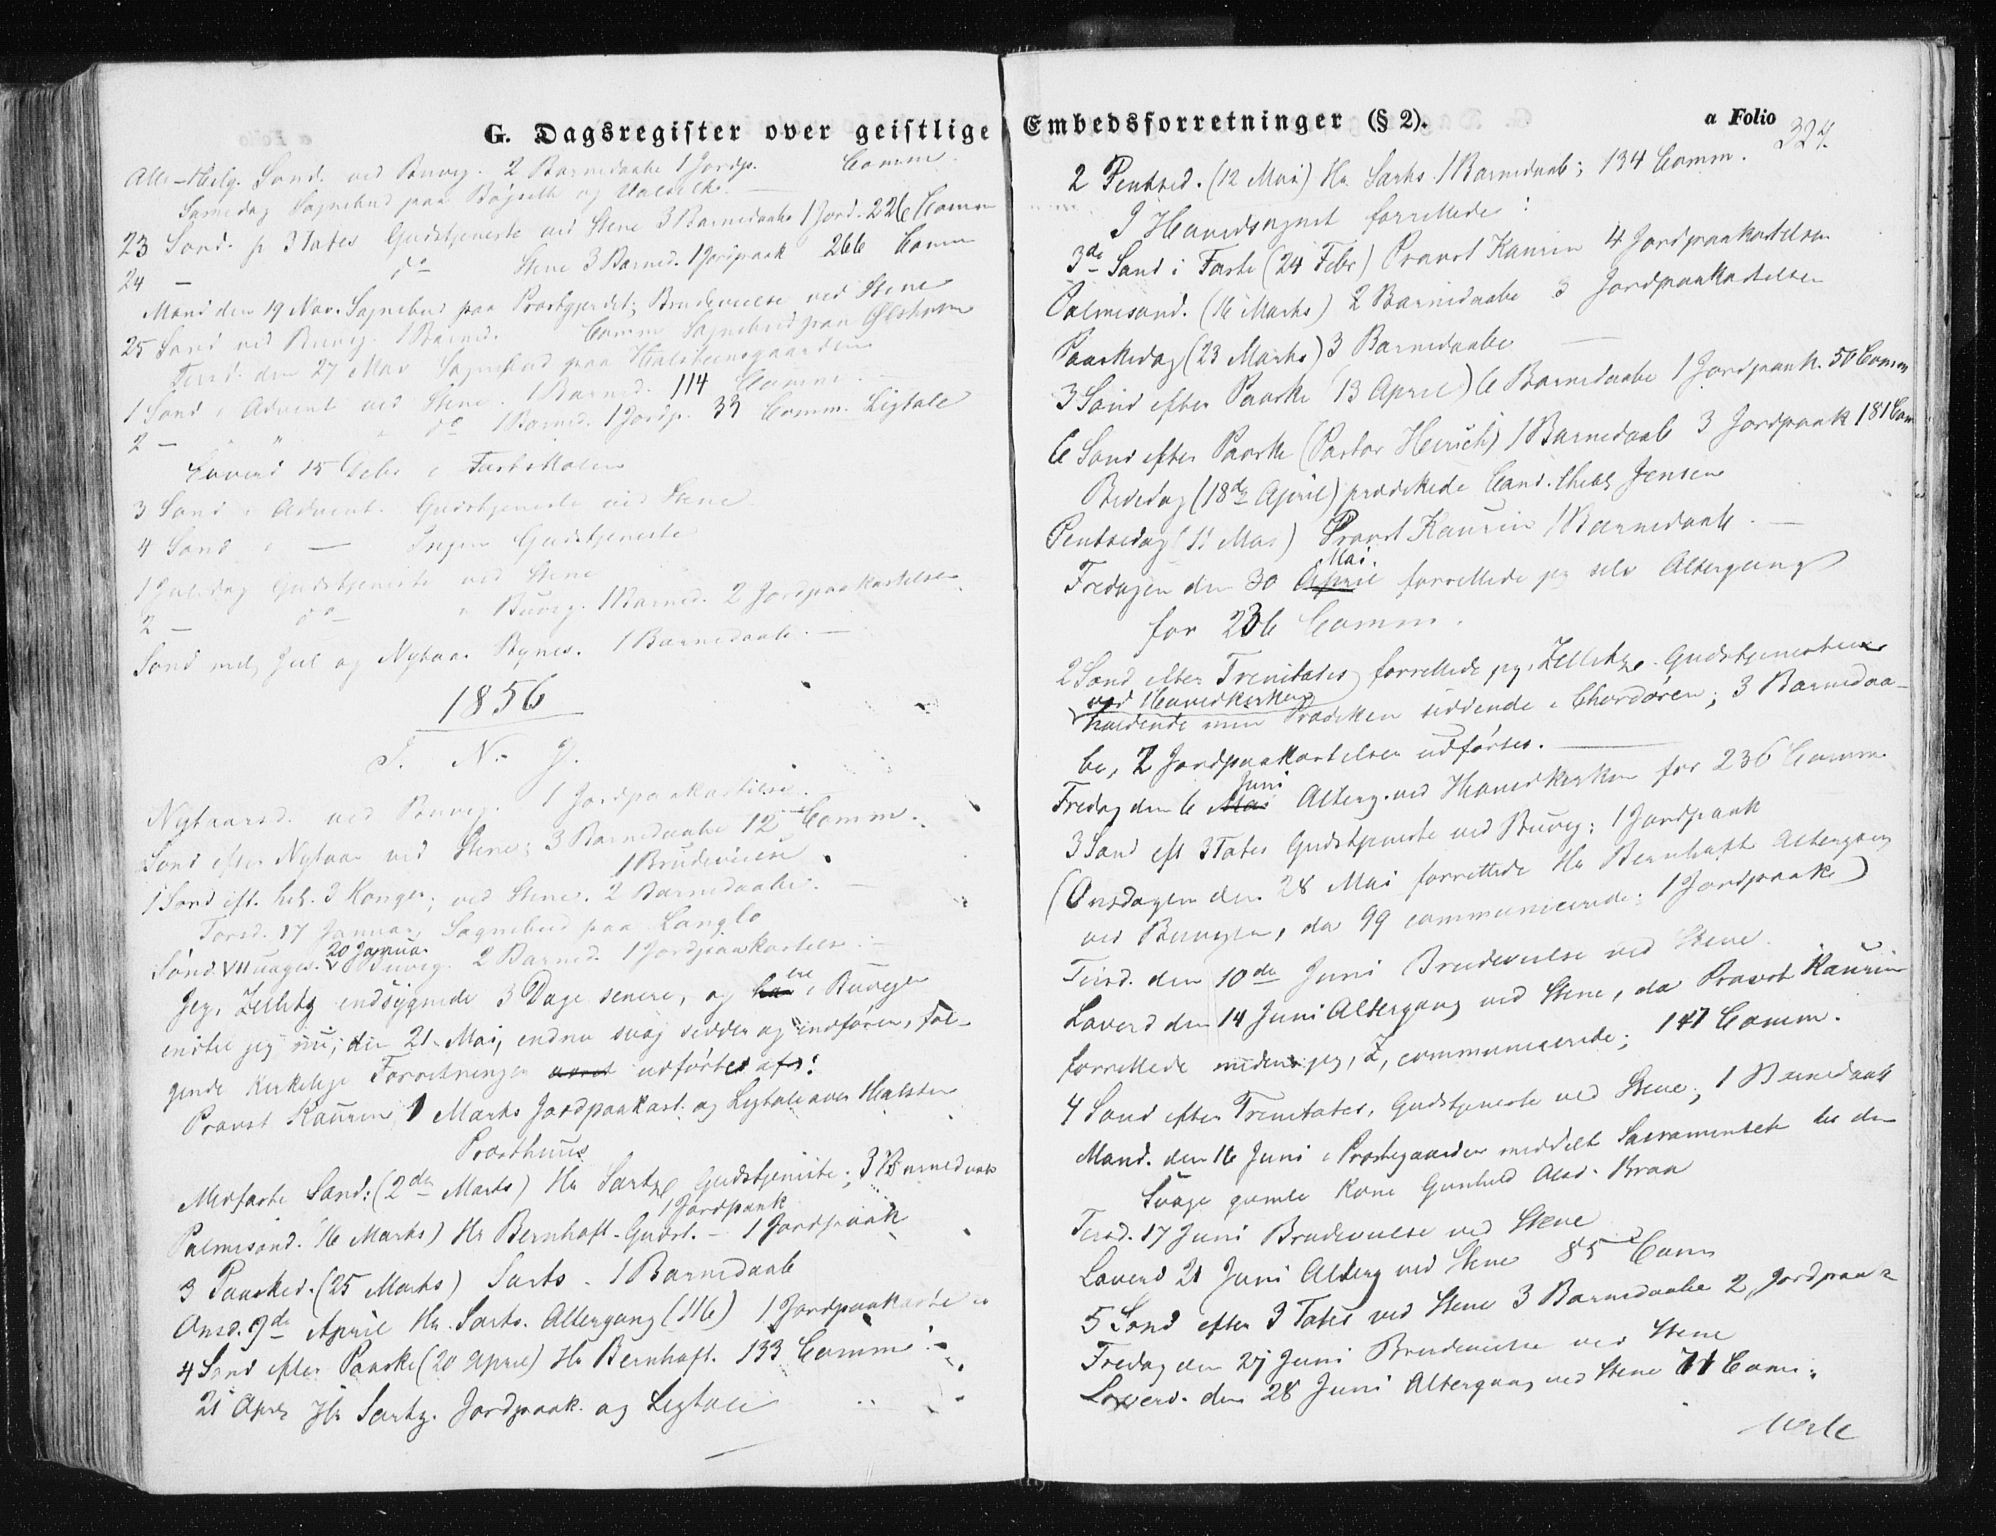 G. Dagsregister over geistlige Embedsforretninger (§ 2).
a Folio
324.
Alle-Helg. Sønd. ved Buvig. 2 Barnedaabe 1 Jordp. Comm.
Samedag Sognebud paa
23 Sønd. p 3tates Gudstjeneste ved Stene 3 Barnedaabe 1 Jord. 226 Comm
24 — do Stene 3 Barned. 1 Jordpaak 266 Comm
Mand den 19 Nov. Sognebud paa Præstgjerdet; Brudevielse ved Stene
25 Sønd ved Buvig. 1 Barned. Comm Sognebud paa
Tirsd. den 27 Nov Sognebud paa
1 Sønd i Advent ved Stene. 1 Barned. 114 Comm.
2 — do 1 Barned. 1 Jordp. 33 Comm. Ligtale
Løverd 15 Debr i
3 Sønd i Advent. Gudstjeneste ved Stene
4 Sønd i — Ingen Gudstjeneste
1 Juledag Gudstjeneste ved Stene
2 — do — " Buvig. 1 Barned. 2 Jordpaakastelser.
Sønd mel. Juul og Nytaar Bynes. 1 Barnedaab. —
1856
I. N. J.
Nytaarsd. ved Buvig. 1 Jordpaakastelse.
Sønd efter Nytaar ved Stene; 3 Barnedaabe 12 Comm.
1 Brudevielse
1 Sønd eft. hel. 3 Konger; ved Stene. 2 Barnedaabe. —
Torsd. 17 Januar, Sognebud paa Langlo
20 Januar
Sønd. Buvig. 2 Barned. 1 Jordpaakastelse. —
Jeg, Zellitz endsygnede 3 Dage senere, og i Buvigen
indtil jeg nu, den 21 Mai, endnu svag sidder og indfører, føl-
gende kirkelige Forretninger udførtes af:
Provst Kaurin 1 Marts Jordpaakast. og Ligtale over Halsten
Præsthuus
Midfaste Sønd: (2den Marts) Hr Sartz Gudstjeneste; 3 Barnedaab
1 Jordpaak
Palmesønd. 16 Marts) Hr Bernhoft. Gudst. — 1 Jordpaak
3 Paasked. (25 Marts) Sarts. 1 Barnedaab
Onsd. 9de April Hr. Sarts. Altergang (116) 1 Jordpaakaste
4 Sønd efter Paaske (20 April) Hr Bernhoft. 133 Comm. —
21 April Hr Sartz. Jordpaak. og Ligtale
2 Pentsed. (12 Mai) Hr. Sarts. 1 Barnedaab; 134 Comm.
I Hovedsognet forrettede:
3de Sønd i Faste (24 Febr) Provst Kaurin 4 Jordpaakastelser
Palmesønd. (16 Marts) 2 Barnedaabe 3 Jordpaakastelser
Paaskedag (23 Marts) 3 Barnedaabe —
3 Sønd efter Paaske (13 April) 6 Barnedaabe 1 Jordpaak. 50 Comm
6 Sønd efter Paaske (Pastor Heirich) 1 Barnedaab 3 Jordpaak 181 Com
Bededag (18de April) prædikede Cand. theol. Jensen
Pentsedag (11 Mai) Provst Kaurin 1 Barnedaab. —
Mai.
Fredagen den 30 April forrettede jeg selv Altergang
for 236 Comm.
2 Sønd efter Trinitatis forrettede jeg, Zellitz. Gudstjenesten
ved Hovedkirken
holdende min Prædiken siddende i Chordøren; 3 Barnedaa-
be, 2 Jordpaakastelser udførtes. —
Juni
Fredag den 6 Mai Alterg. ved Hovedkirken for 236 Comm.
3 Sønd eft 3tates Gudstjeneste ved Buvig; 1 Jordpaak
(Onsdagen den 28 Mai forrettede Hr Bernhoft Altergang
ved Buvigen, da 99 communicerede; 1 Jordpaak)
Tirsd. den 10de Juni Brudevielse ved Stene.
Løverd den 14 Juni Altergang ved Stene, da Provst Kaurin
forrettede medens jeg, Z, communicerede; 147 Comm.
4 Sønd efter Trinitates, Gudstjeneste ved Stene; 1 Barnedaab
Mand. den 16 Juni i Præstegaarden meddelt Sacramentet til den
svage gamle Kone Gunhild Braa
Tirsd. 17 Juni Brudevielse ved Stene
Løverd 21 Juni Alterg ved Stene 85 Com
5 Sønd efter 3tates ved Stene 3 Barnedaabe 2 Jordpaak
Fredag den 27 Juni Brudevielse ved Stene
Løverd. den 28 Juni Altergang ved Stene 71 Com.